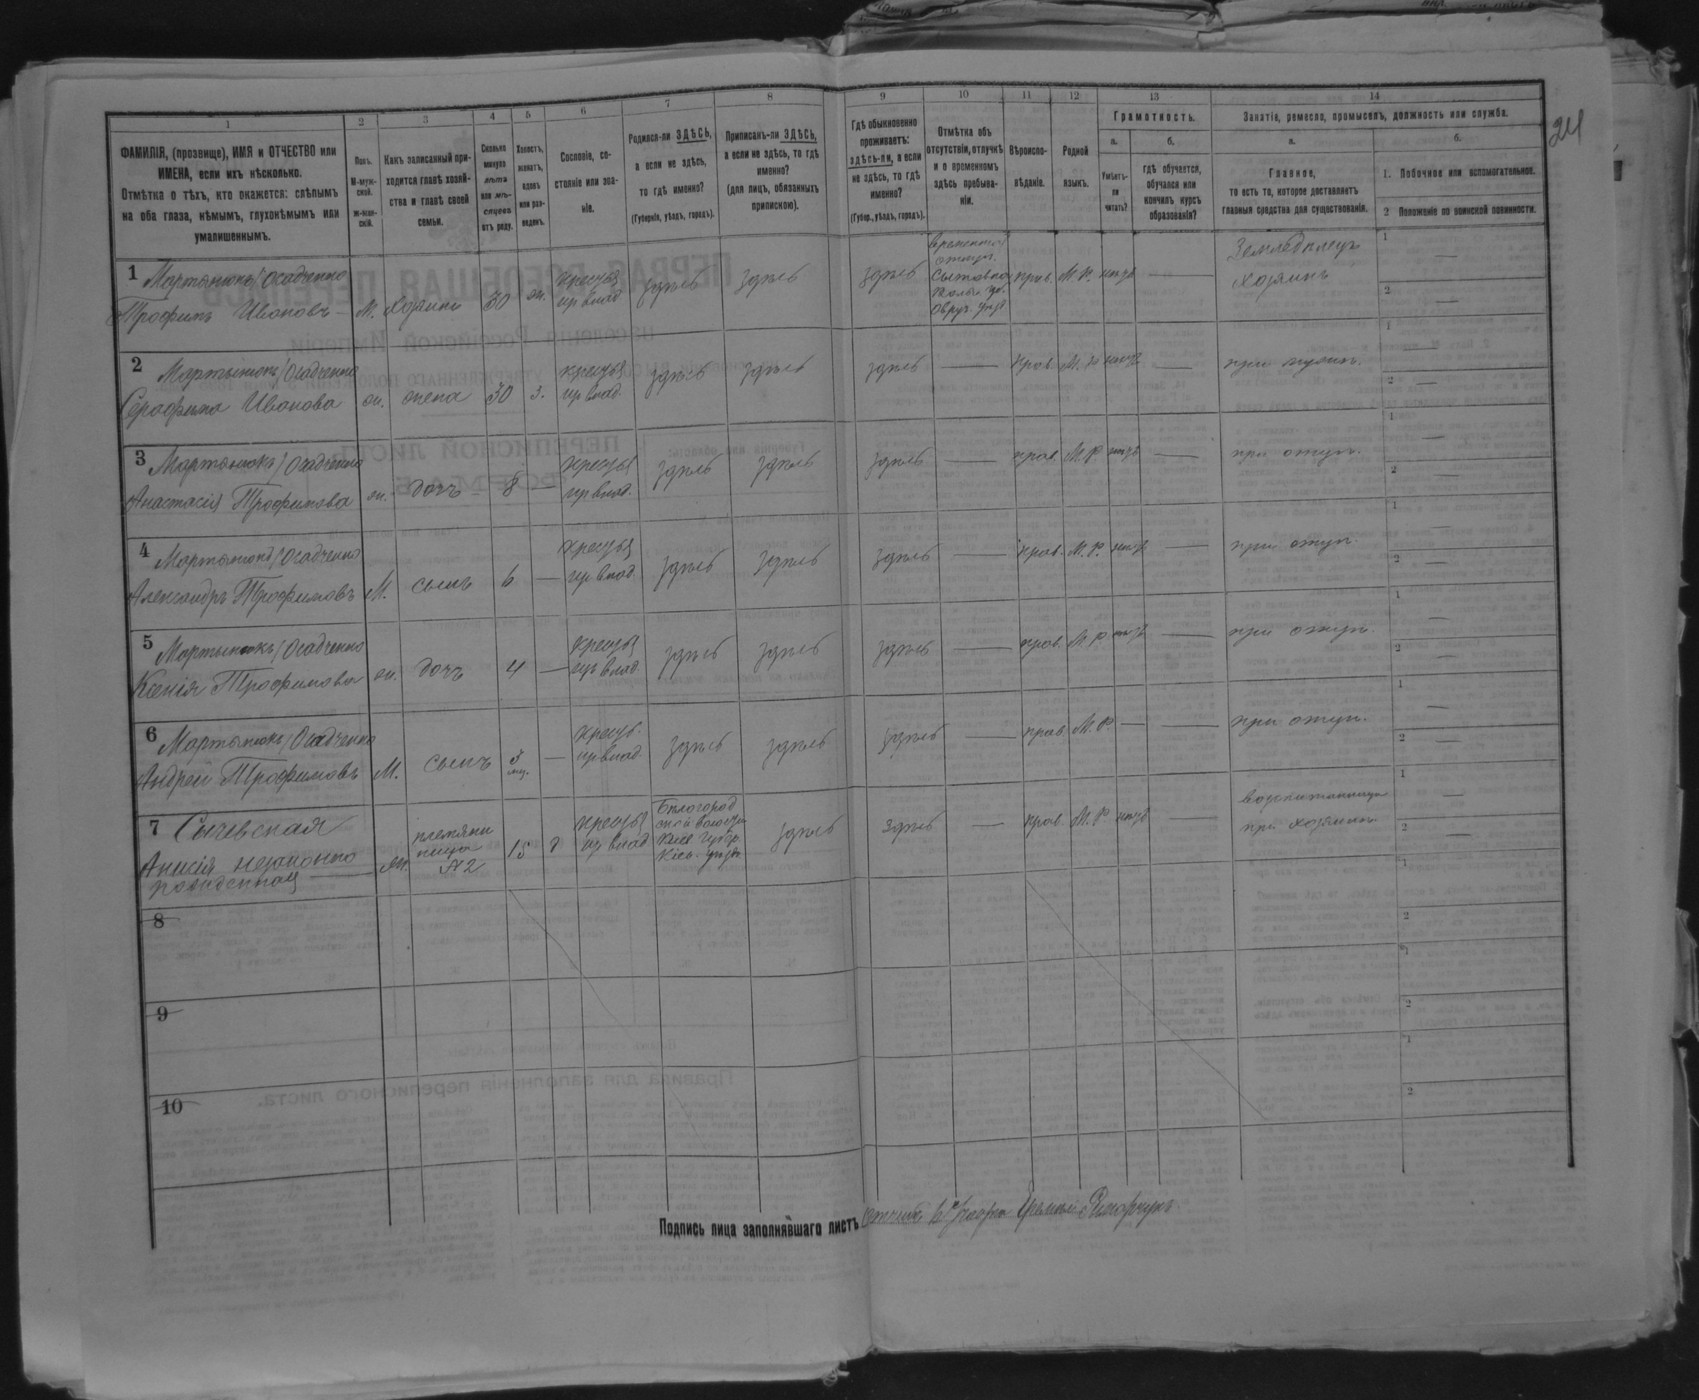 24
1 2 3 4 5 6 7 8 9 10 11 12 13 14
ФАМИЛІЯ, (прозвище), ИМЯ и ОТЧЕСТВО или
ИМЕНА, если ихъ нѣсколько.
Отмѣтка о тѣхъ, кто окажется: слѣпымъ
на оба глаза, нѣмымъ, глухонѣмымъ или
умалишеннымъ.
Полъ.
М-муж-
ской.
ж-жен-
скій.
Какъ записанный при-
ходится главѣ хозяй-
ства и главѣ своей
семьи.
Сколько
минуло
лѣтъ
или мѣ-
сяцевъ
отъ роду.
Холостъ,
женатъ,
вдовъ
или раз-
веденъ.
Сословіе, со-
стояніе или зва-
ніе.
Родился-ли ЗДѢСЬ,
а если не здѣсь,
то гдѣ именно?
(Губернія, уѣздъ, городъ).
Приписанъ-ли ЗДѢСЬ,
а если не здѣсь, то гдѣ
именно?
(для лицъ, обязанныхъ
припискою).
Гдѣ обыкновенно
проживаетъ:
здѣсь-ли, а если
не здѣсь, то гдѣ
именно?
(Губер., уѣздъ, городъ).
Отмѣтка объ
отсутствіи, отлучкѣ
и о временномъ
здѣсь пребыва-
ніи.
Вѣроиспо-
вѣданіе.
Родной
языкъ.
Грамотность.
а.
Умѣетъ-
ли
читать?
б.
гдѣ обучается,
обучался или
кончилъ курсъ
образованія?
Занятіе, ремесло, промыселъ, должность или служба.
а.
Главное,
то есть то, которое доставляетъ
главныя средства для существованія.
б.
1. Побочное или вспомогательное.
2 Положеніе по воинской повинности.
1 Мартынюкъ/Осадченко
Трофимъ Ивановъ — М. хозяинъ 30 ж. кресть
из влад. здѣсь здѣсь здѣсь
прав. М. Р. нтъ — Земледѣлецъ
хозяинъ
1 —
2 —
2 Мартынюкъ/Осадченко
Серафима Иванова ж. жена 30 з. кресть
из влад. здѣсь здѣсь здѣсь — прав. М. Р. нтъ — при мужѣ.
1 —
2 —
3 Мартынюкъ/Осадченко
Анастасія Трофимова ж. дочь — 8 — кресть
из влад. здѣсь здѣсь здѣсь — прав. М. Р. нтъ — при отцѣ.
1 —
2 —
4 Мартынюкъ/Осадченко
Александръ Трофимовъ М. сынъ 6 — кресть
из влад. здѣсь здѣсь здѣсь — прав. М. Р. нтъ — при отцѣ.
1 —
2 —
5 Мартынюкъ/Осадченко
Ксенія Трофимова ж. дочь 4 — кресть
из влад. здѣсь здѣсь здѣсь — прав. М. Р. нтъ — при отцѣ.
1 —
2 —
6 Мартынюкъ/Осадченко
Андрей Трофимовъ М. сынъ 3
мц. — кресть.
из влад. здѣсь здѣсь здѣсь — прав. М. Р. — — при отцѣ.
1 —
2 —
7 Сычевская
Анисія незаконно
рожденная — ж. племянн
ница
№2 15 д кресть
из влад Бѣлогород
ской волости
Кіев. Губер.
Кіев. уѣзд. здѣсь здѣсь — прав. М. Р. нтъ — воспитанница
при хозяинѣ.
1 —
2 —
8
1
2
9
1
2
10
1
2
Подпись лица заполнявшаго листъ